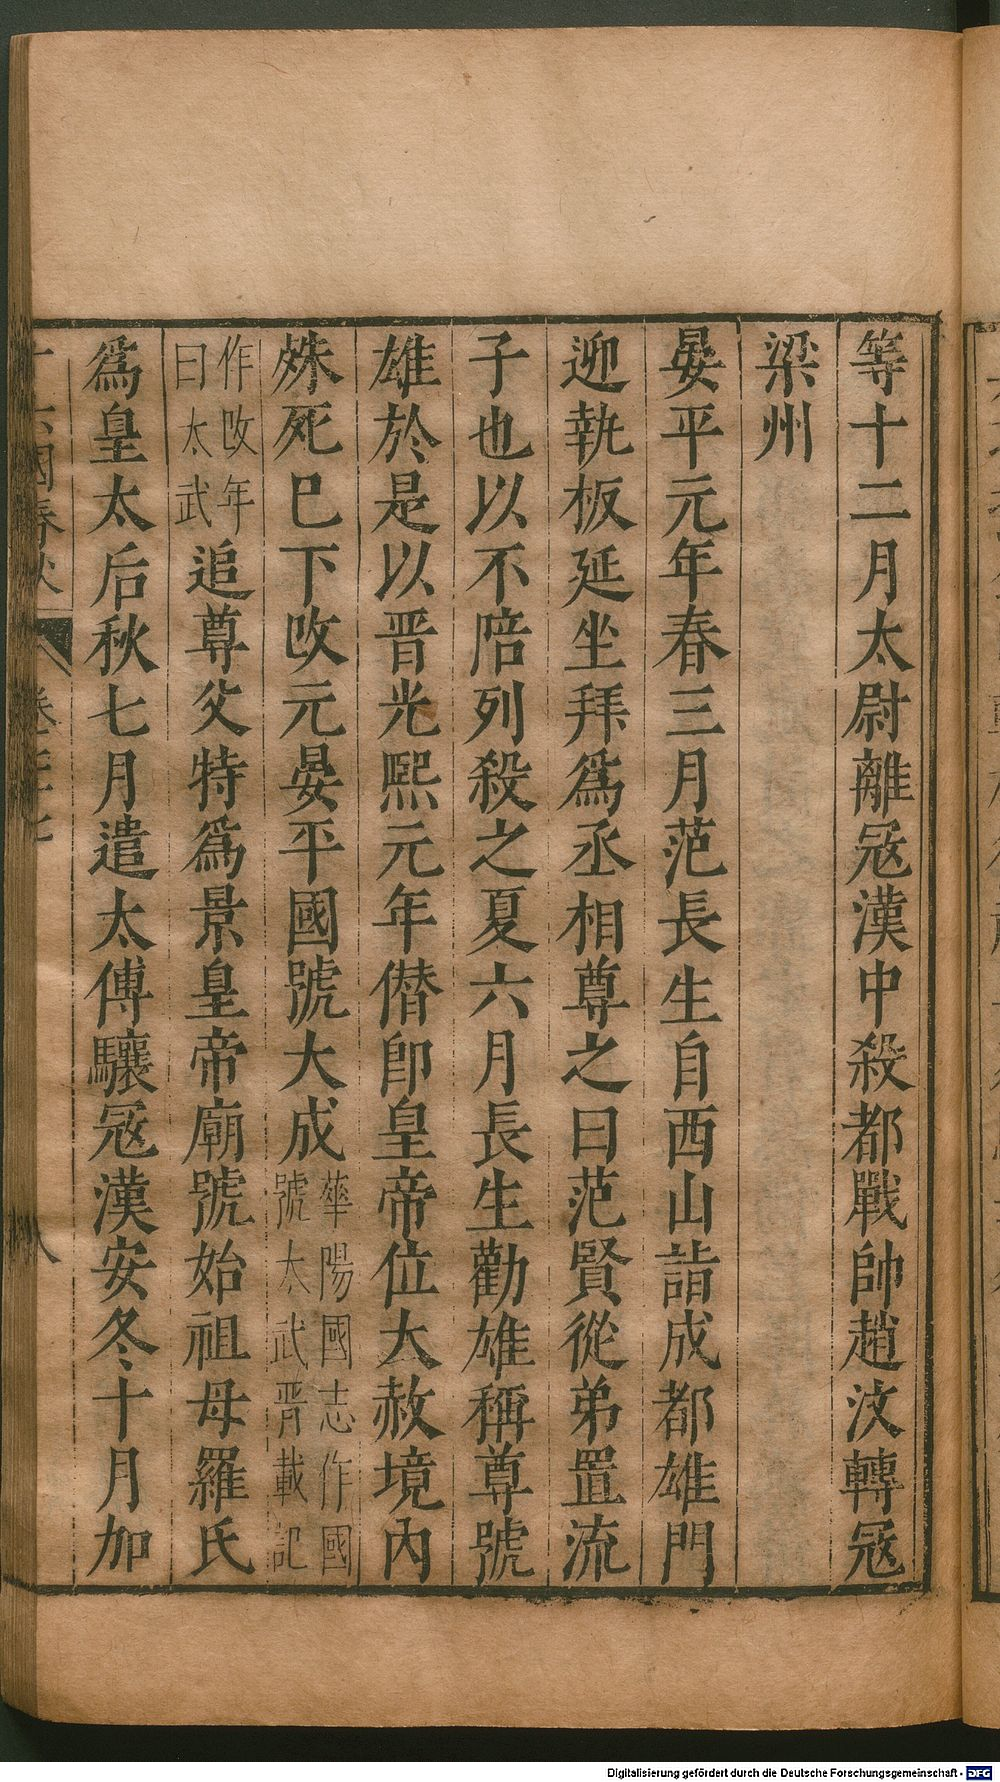 等十二月太尉離冦漢中殺都戰帥趙汶轉冦
梁州
晏平元年春三月范長生自西山詣成都雄門
迎執板延坐拜爲丞相尊之曰范賢從弟置流
子也以不陪列殺之夏六月長生勸雄稱尊號
雄於是以晉光熙元年僭卽皇帝位大赦境內
殊死巳下改元晏平國號大成華陽國志作國
號太武晉載記
作改年
曰太武
追尊父特爲景皇帝廟號始祖母羅氏
爲皇太后秋七月遣太傅驤冦漢安冬十月加
十六國春秋 卷七十七 八
Digitalisierung gefördert durch die Deutsche Forschungsgemeinschaft - DFG